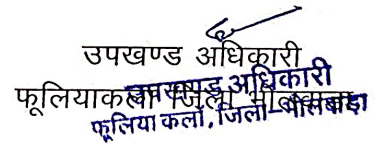 उपखण्ड अधिकारी
फूलियाकलां जिला भीलवाड़ा
उपखण्ड अधिकारी
फूलिया कलां, जिला-भीलवाड़ा